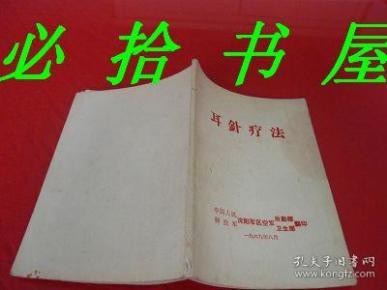 必拾书屋
耳針疗法
中国人民
解放军
沈阳军区空军
后勤部
卫生部
翻印
一九六九年八月
孔夫子旧书网